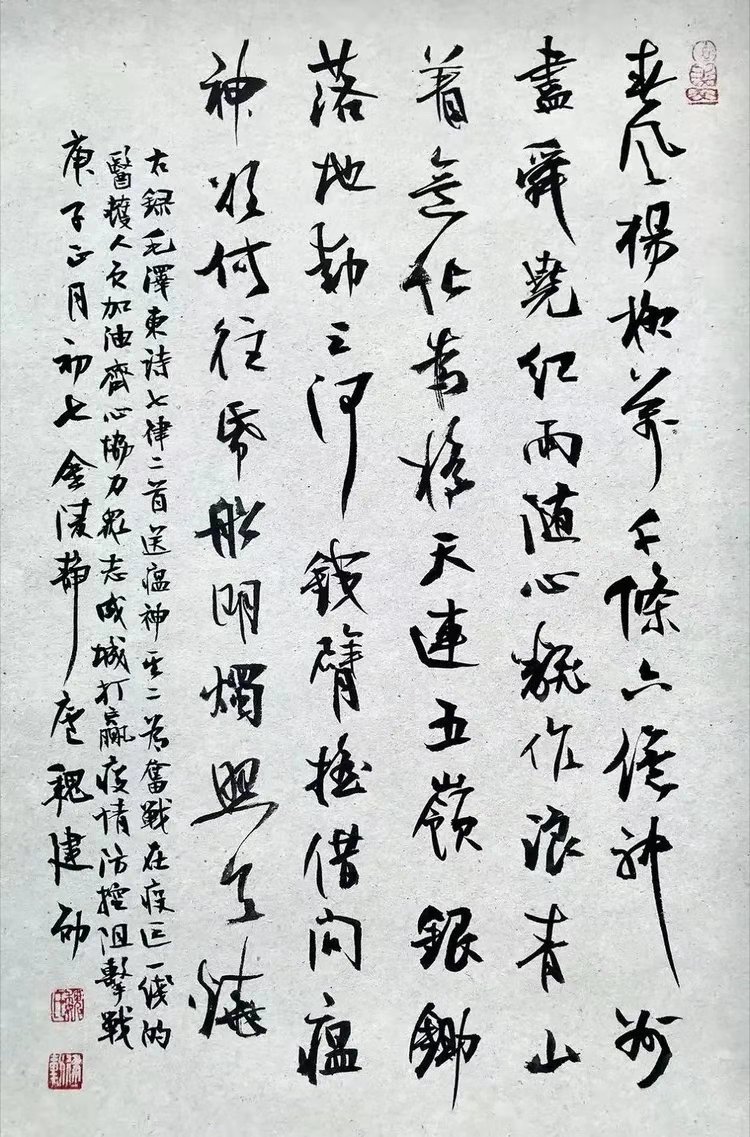 春风楊柳萬千條六億神州
盡舜堯紅雨随心翻作浪青山
着意化為橋天連五嶺銀鋤
落地動三河鐵臂摇借问瘟
神欲何往纸船明燭照天燒
右録毛澤東诗七律二首送瘟神其二為奮戰在疫区一线的
醫護人员加油齊心協力眾志成城打贏疫情防控阻擊戰
庚子正月初七金陵静庐魏建